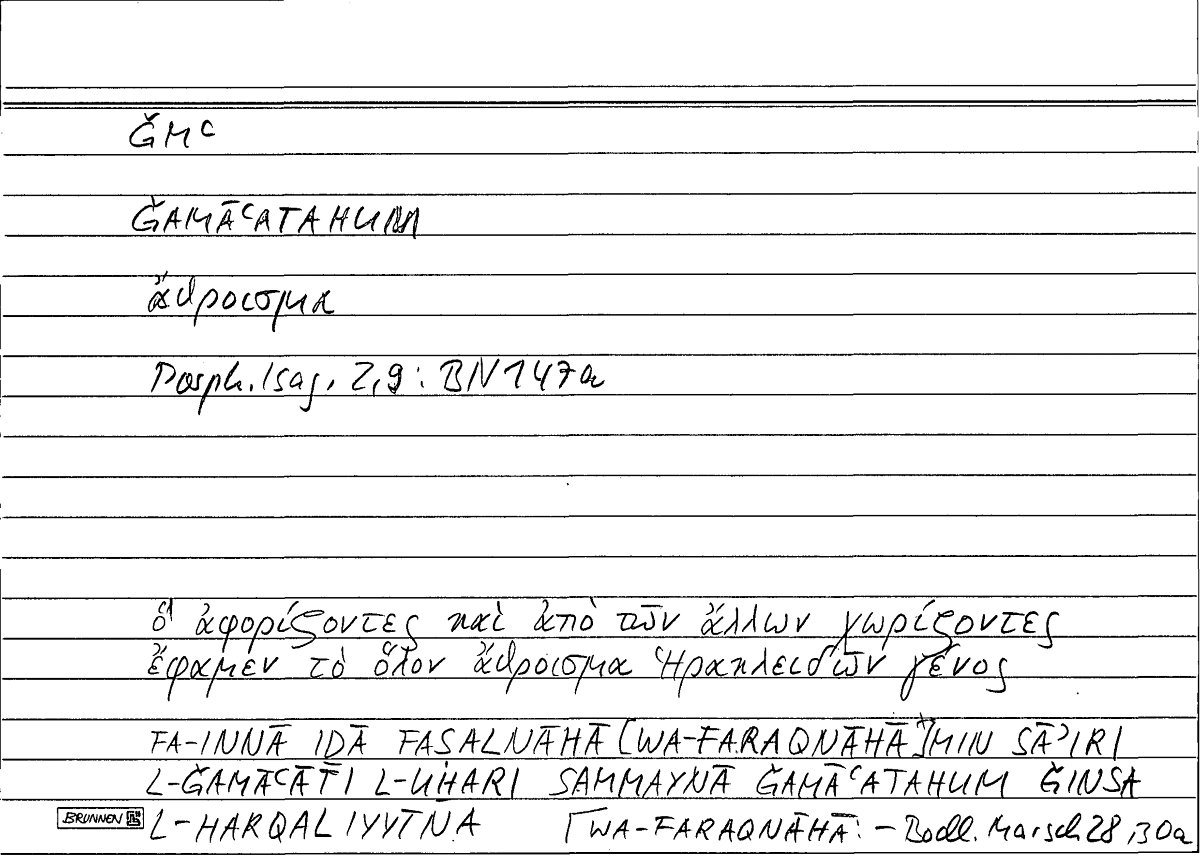 ǦMᶜ
ǦAMĀᶜATAHUM
ἄθροισμα
Porph. Isag. 2,9: BN 147a
ὃ ἀφορίζοντες καὶ ἀπὸ τῶν ἄλλων χωρίζοντες
ἔφαμεν τὸ ὅλον ἄθροισμα Ἡρακλειδῶν γένος
FA-INNĀ IDĀ FASALNĀHĀ [WA-FARAQNĀHĀ] MIN SĀʾIRI
L-ǦAMĀᶜĀTI L-UHARI SAMMAYNĀ ǦAMĀᶜATAHUM ǦINSA
BRUNNEN L-HARQALIYYĪNA ⌈WA-FARAQNĀHĀ: – Bodl. Marsch 28, 30a